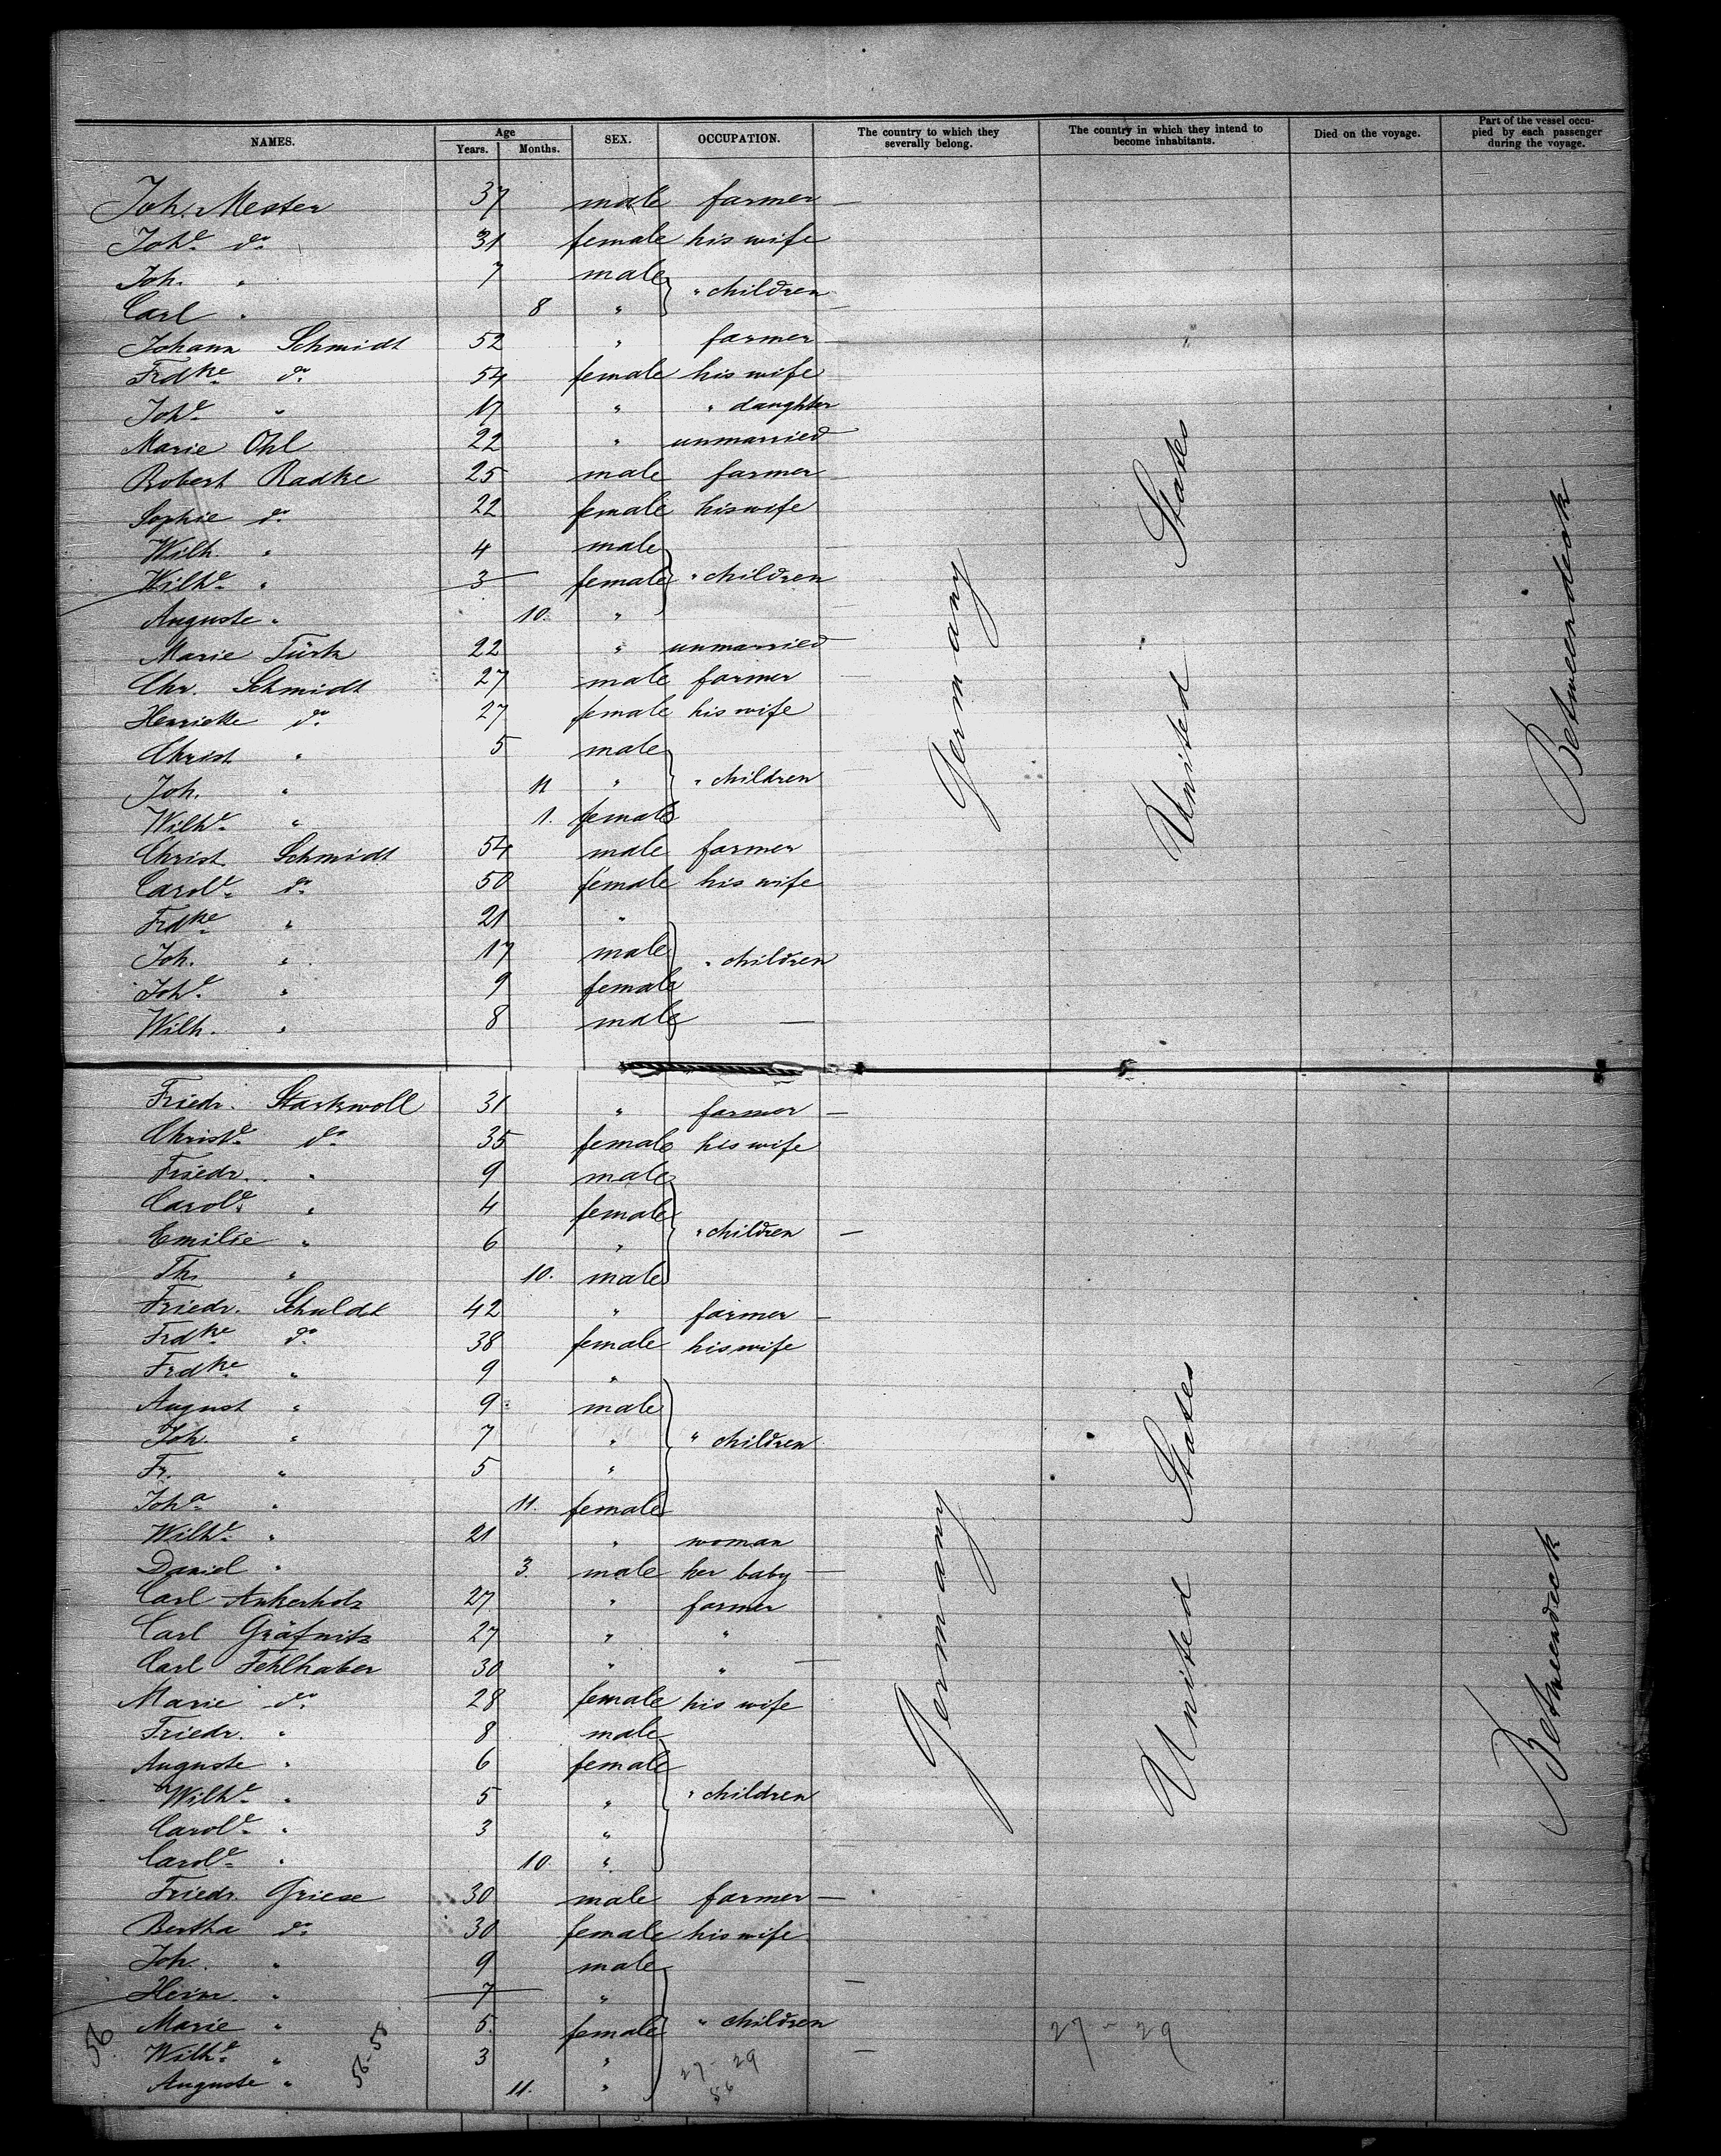 NAMES. Age Years. Months. SEX. OCCUPATION. The country to which they severally belong. The country in which they intend to become inhabitants. Died on the voyage. Part of the vessel occupied by each passenger during the voyage.
Joh. Mester 37 male farmer —
Joh^e do 31 female his wife
Joh. " 7 male
Carl " 8 " " children —
Johann Schmidt 52 " farmer —
Frdke do 54 female his wife
Joh^e " 17 " " daughter
Marie Ohl 22 " unmarried
Robert Radke 25 male farmer
Sophie do 22 female his wife
Wilh. " 4 male
Wilh^e " 3 female " children
Auguste " 10. "
Marie Türk 22 " unmarried
Chr. Schmidt 27 male farmer
Henriette do 27 female his wife
Christ " 5 male
Joh. " 11 " " children
Wilh^e " 1. female
Christ Schmidt 54 male farmer
Carol^e do 50 female his wife
Frdke " 21 "
Joh. " 17 male " children
Joh^e " 9 female
Wilh. " 8 male —
Germany
United States
Betweendeck
Friedr. Starkwoll 31 " farmer —
Christ^e do 35 female his wife
Friedr. " 9 male
Carol^e " 4 female
Emilie " 6 " " children —
Th. " 10. male
Friedr. Schuldt 42 " farmer —
Frdke do 38 female his wife
Frdke " 9 "
August " 9 male
Joh. " 7 " " children
Fr. " 5 "
Joh^a " 11. female
Wilh^e " 21 " woman
Daniel " 3. male her baby —
Carl Ankerholz 27 " farmer
Carl Gräfnitz 27 " "
Carl Fehlhaber 30 " " —
Marie do 28 female his wife
Friedr. " 8 male
Auguste " 6 female
Wilh^e " 5 " " children
Carol^e " 3 "
Carol^e " 10 "
Friedr. Griese 30 male farmer —
Bertha do 30 female his wife
Joh. " 9 male
Heinr. " 7 " —
Marie " 5. female " children
Wilh^e " 3 " —
Auguste " 11. "
Germany
United States
Betweendeck
56
56-58
27-29
56
27-29